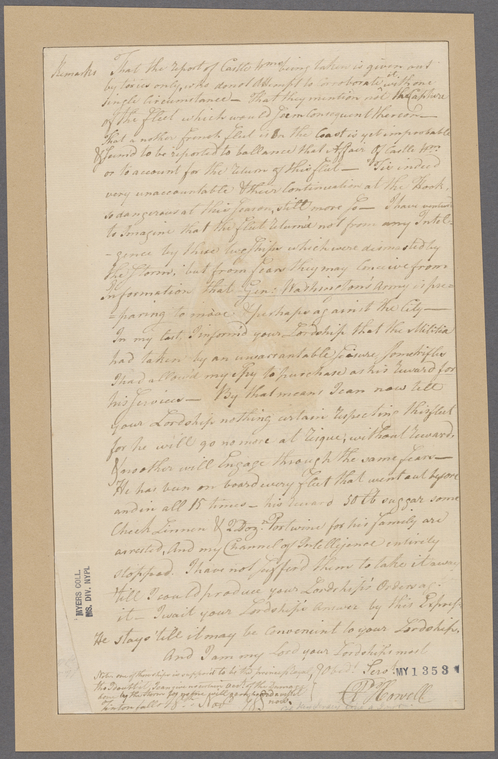 Remarks That the report of Castle Wm being taken is given out
by tories only, who do not Attempt to Corroborate it with one
single Circumstance — That they mention not the Capture
of the fleet which would seem Consequent thereon —
That another french fleet is on the Coast is yet improbable
& found to be reported to ballance that Affair of Castle Wm
or to account for the return of this fleet — 'Tis indeed
very unaccountable & their Continuation at the Hook,
so dangerous at this Season, still more so — I have
to Imagine that the fleet returns not from any Intel-
-gence by these two Ships which were dismasted by
the Storm, but from fears they may conceive from
information that Genl Washingtons Army is pre-
-paring to move & perhaps against the City —
In my last, I informd your Lordship that the Militia
had taken by an unwarrantable seizure, some trifles
I had allow'd my spy to purchase as his reward for
his services — By that means I can now tell
your Lordship nothing certain respecting this fleet
for he will go no more at risque, without reward
& no other will Engage through the same fears —
He has been on board every fleet that went out before
and in all 15 times — his reward 50 lb suggar some
Check, Linnen & 2 Doz. Portwine for his family are
arrested, And my Channel of Intelligence entirely
stopped. I have not suffered them to take it away
till I could produce your Lordship's Orders
it — I wait your Lordship's Answer by this Express
He stays till it may be Convenient to your Lordship,
And I am my Lord your Lordship's most
Obedt Servt
Howell
Note, one of the ships is supposed to be the princess Royal,
Tinton falls
MYERS COLL.
MS. DIV. NYPL
MY 1353